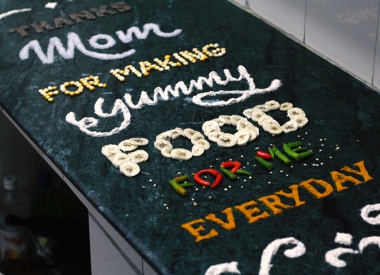 THANKS
Mom
FOR MAKING
yummy
FOOD
FOR ME
EVERYDAY